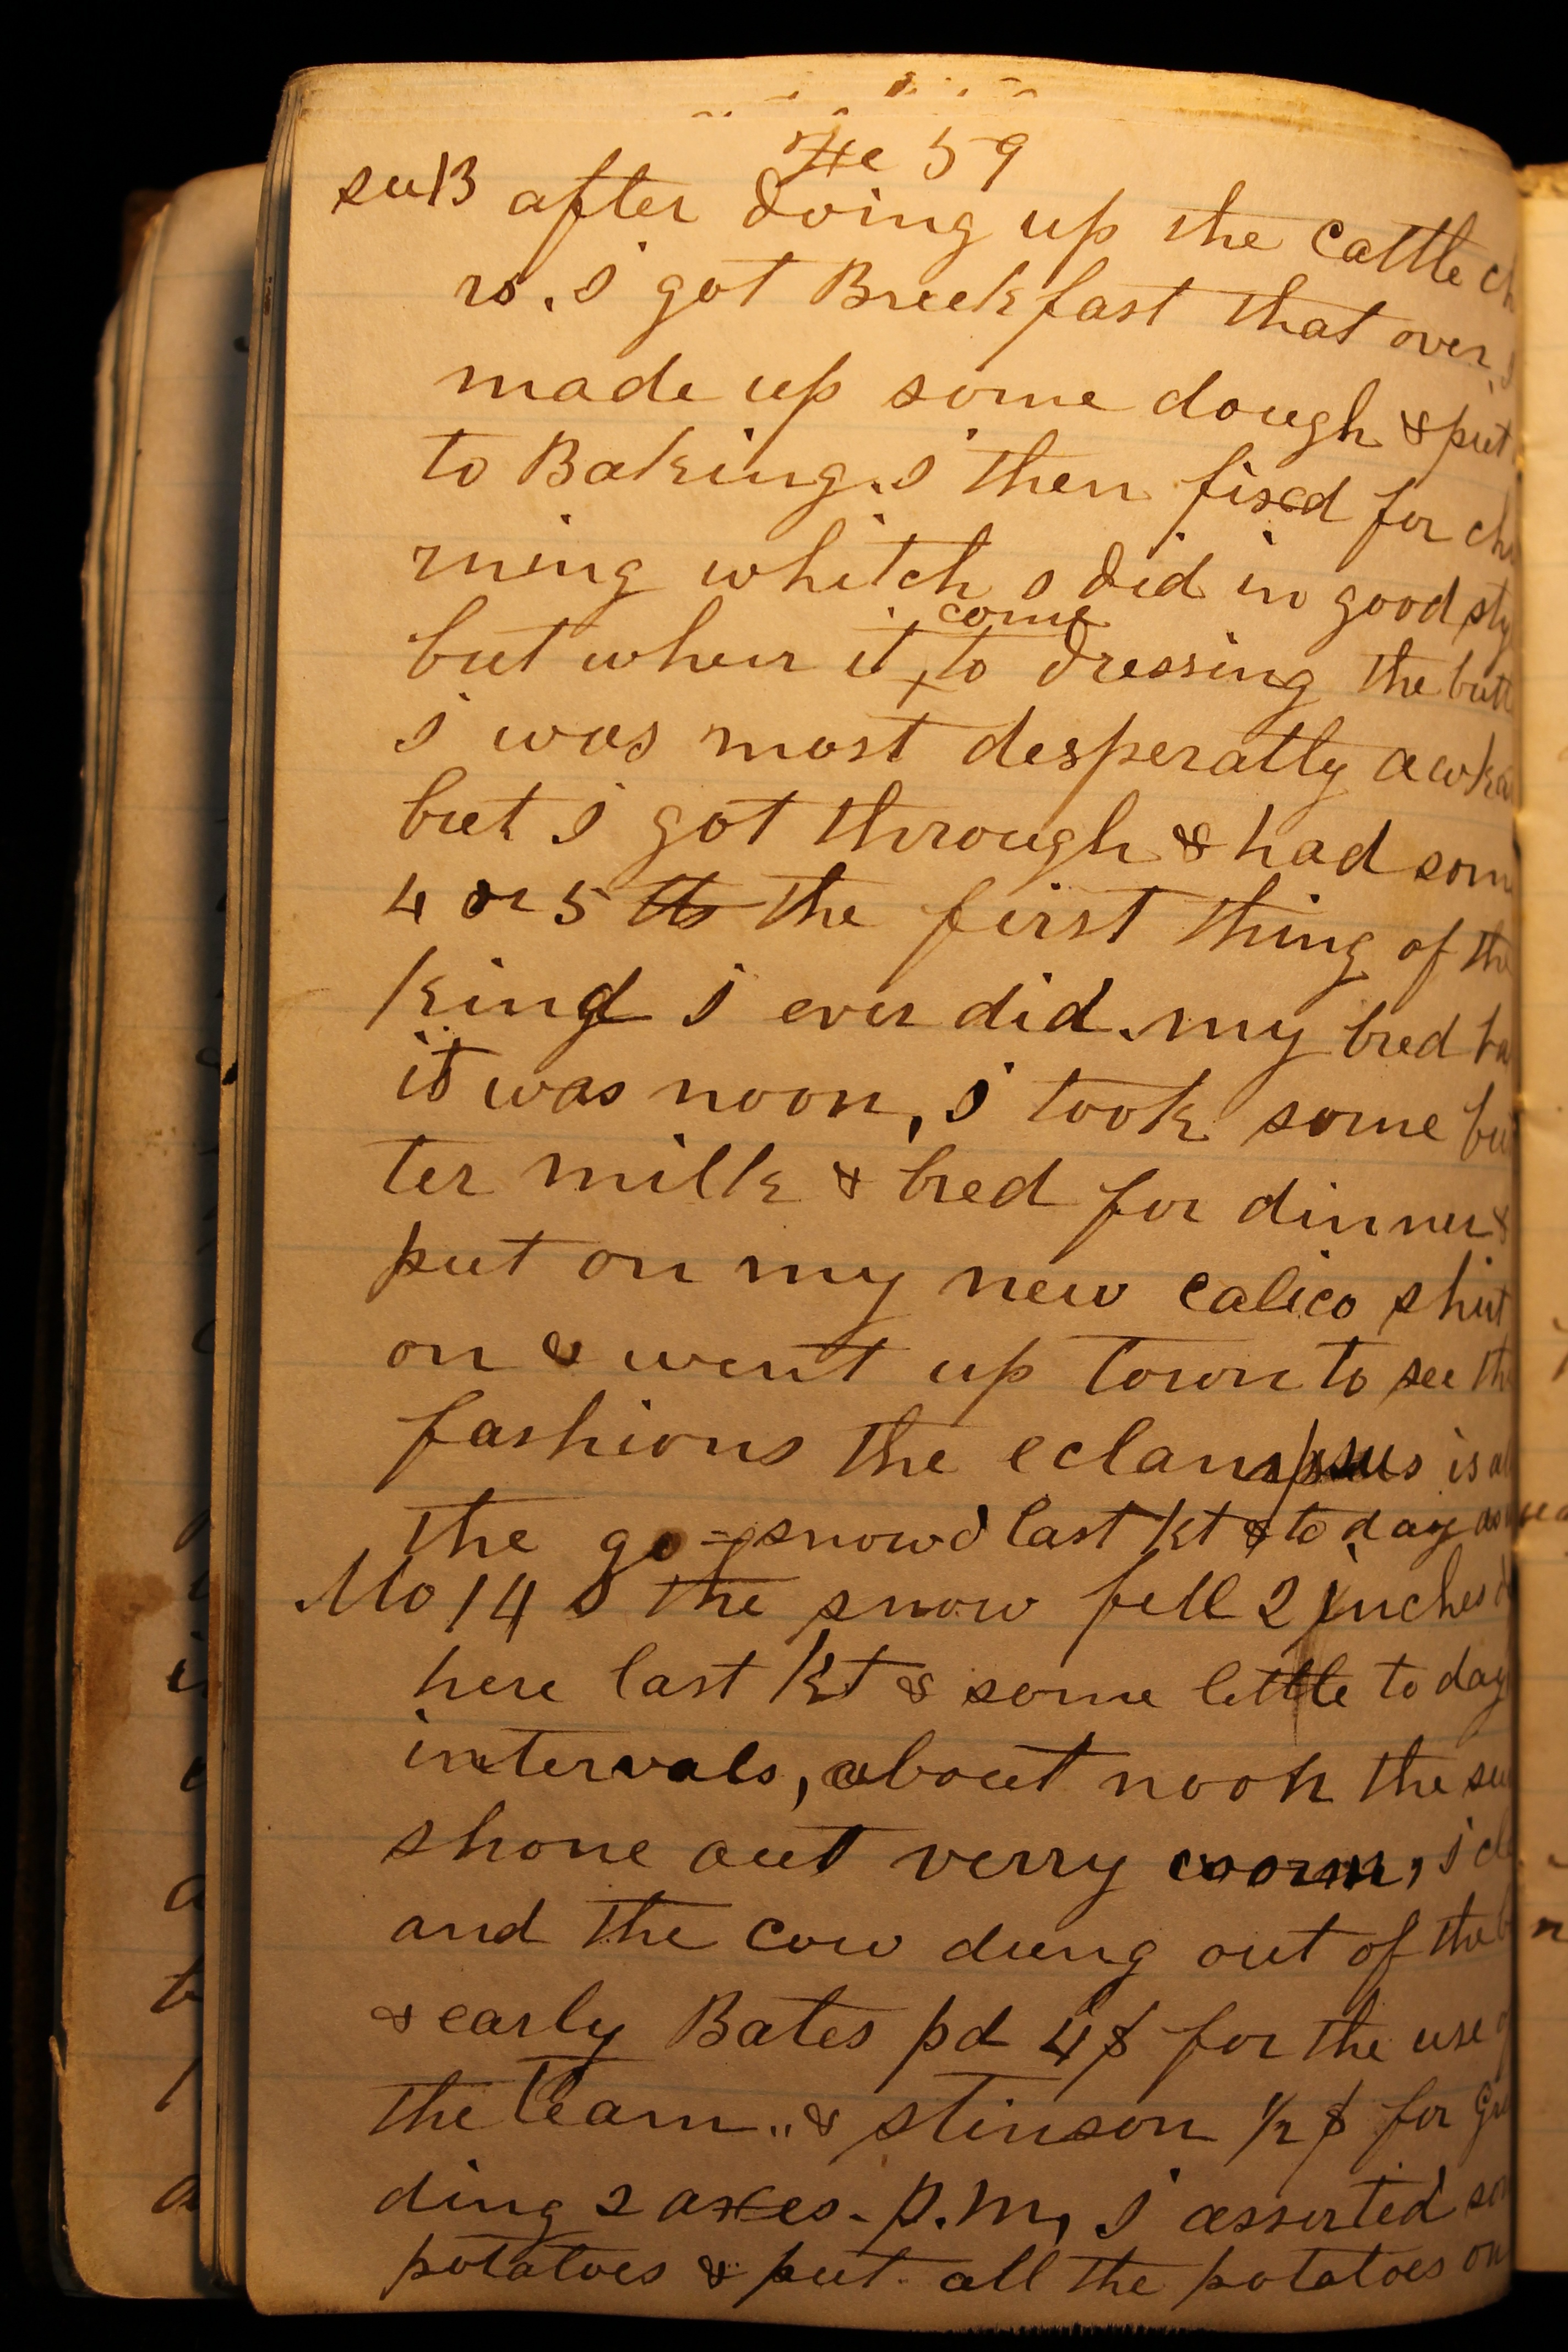 Fe 59
su 13 after doing up the cattle ch
rs. I got Breekfast that over, I
made up some dough & put
to Baking. I then fixed for chu
rning whitch I did in good sty
come
but when it to dressing the butt
I was most desperatly awka
but I got through & had som
4 or 5 lbs the first thing of the
kind I ever did. my bred ba
it was noon, I took some but
ter milk & bred for dinner &
put on my new calico shirt
on & went up town to see the
fashions the eclampsus is all
the go - snowd last kt & to day
Mo 14 the snow fell 2 inches d
here last kt & some little to day
intervals, about noon the sun
shone out verry worm, I cle
and the cow dung out of the b
& early Bates pd 4$ for the use of
the team.. & stinson 1/2 $ for Grin
ding 2 axes. p.m, I assorted som
potatoes & put all the potatoes on